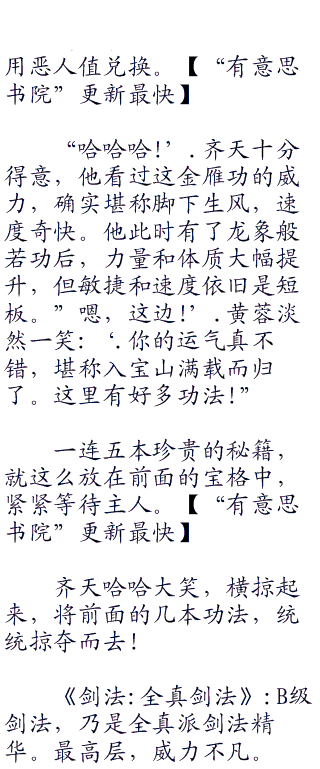 用恶人值兑换。【“有意思
书院”更新最快】
“哈哈哈!’.齐天十分
得意，他看过这金雁功的威
力，确实堪称脚下生风，速
度奇快。他此时有了龙象般
若功后，力量和体质大幅提
升，但敏捷和速度依旧是短
板。”嗯，这边!’.黄蓉淡
然一笑:‘.你的运气真不
错，堪称入宝山满载而归
了。这里有好多功法!”
一连五本珍贵的秘籍，
就这么放在前面的宝格中，
紧紧等待主人。【“有意思
书院”更新最快】
齐天哈哈大笑，横掠起
来，将前面的几本功法，统
统掠夺而去!
《剑法:全真剑法》:B级
剑法，乃是全真派剑法精
华。最高层，威力不凡。